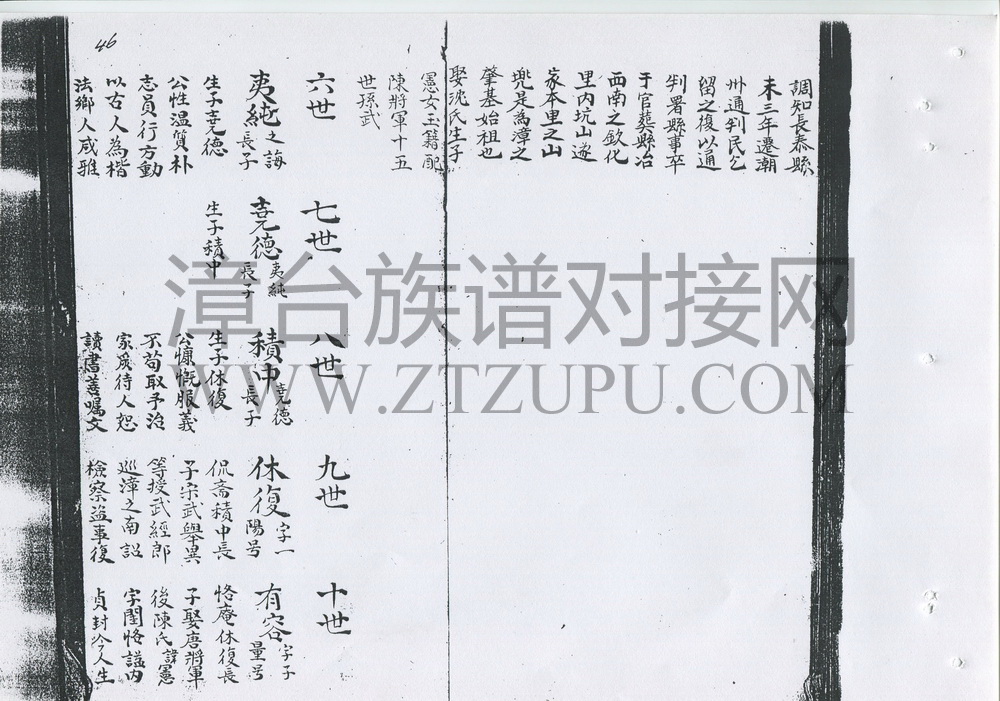 46
調知長泰縣
未三年遷潮
州通判民乞
留之復以通
判署縣事卒
于官葬縣治
西南之欽化
里内坑山遂
家本里之山
兜是為漳之
肇基始祖也
娶沈氏生子
憲女玉籍配
陳將軍十五
世孫武
六世
夷純之誨
長子
生子堯德
公性温質朴
志員行方動
以古人為楷
法鄉人咸雅
七世
堯德夷純
長子
生子積中
八世
積中堯德
長子
生子休復
公慷慨服義
不苟取予治
家嚴待人恕
讀書善囑文
九世
休復字一
陽号
侃斋積中長
子宗武舉異
等授武經郎
巡漳之南詔
檢察盗事復
十世
有容字子
量号
恪庵休復長
子娶唐將軍
後陳氏諱憲
字閨恪謚内
貞封令人生
漳台族谱对接网
WWW.ZTZUPU.COM